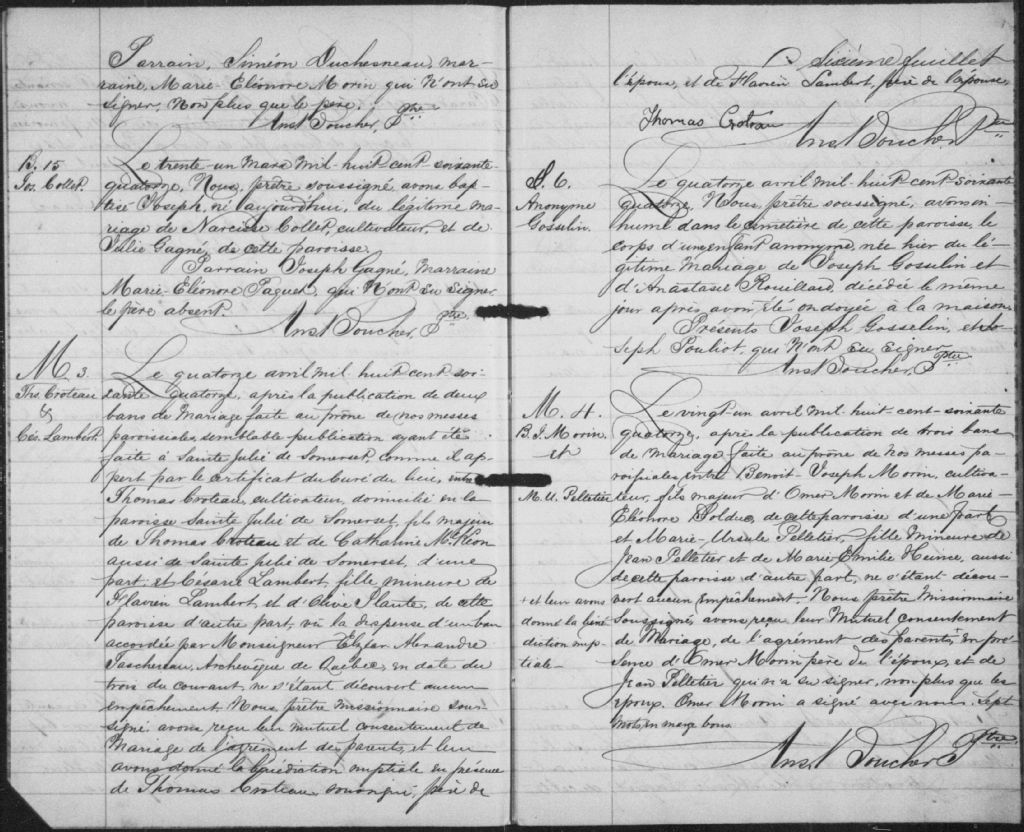 Parrain, Siméon Duchesneau, mar-
raine, Marie-Eléonore Morin qui n'ont su
signer, non plus que le père.
Anst Foucher, Ptre
B. 15
Jos. Collet.
Le trente un mars mil-huit-cent-soixante-
quatorze, Nous, prêtre soussigné, avons bap-
tisé Joseph, né aujourd'hui, du légitime ma-
riage de Narcisse Collet, cultivateur, et de
Julie Gagné, de cette paroisse.
Parrain Joseph Gagné, Marraine
Marie-Eléonore Paquet, qui n'ont su signer,
le père absent.
Anst Foucher, Ptre
M. 3.
Ths. Croteau
&
Cés. Lambert.
Le quatorze avril mil huit cent soi-
xante quatorze, après la publication de deux
bans de mariage faite au prône de nos messes
paroissiales, semblable publication ayant été
faite à Sainte Julie de Somerset, comme il ap-
pert par le certificat du Curé du lieu, entre
Thomas Croteau, cultivateur, domicilié en la
paroisse Sainte Julie de Somerset, fils majeur
de Thomas Croteau et de Catharine McKeon
aussi de Sainte Julie de Somerset, d'une
part, et Césarie Lambert, fille mineure de
Flavien Lambert, et d'Olive Plante, de cette
paroisse d'autre part, vu la dispense d'un ban
accordée par Monseigneur Elzéar Alexandre
Taschereau, Archevêque de Québec, en date du
trois du courant, ne s'étant découvert aucun
empêchement, Nous, prêtre missionnaire sous-
signé, avons reçu leur mutuel consentement de
Mariage de l'agrément des parents, et leur
avons donné la bénédiction nuptiale en présence
de Thomas Croteau, soussigné, père de
Sixième feuillet
l'époux, et de Flavien Lambert, père de l'épouse.
Thomas Croteau
Anst Foucher Ptre
S. 6.
Anonyme
Gosselin.
Le quatorze avril mil-huit-cent-soixante
quatorze, Nous, prêtre soussigné, avons in-
humé dans le cimetière de cette paroisse, le
corps d'un enfant anonyme, née hier du lé-
gitime mariage de Joseph Gosselin et
d'Anastasie Rouillard, décédée le même
jour après avoir été ondoyée à la maison.
Présents Joseph Gosselin, et Jo-
seph Pouliot, qui n'ont su signer.
Anst Foucher, Ptre
M. 4.
B. J. Morin.
et
M. U. Pelletier
Le vingt-un avril mil-huit-cent-soixante
quatorze, après la publication de trois bans
de mariage faite au prône de nos messes pa-
roissiales, entre Benoit-Joseph Morin, cultiva-
teur, fils majeur d'Omer Morin et de Marie-
Eléonore Bolduc, de cette paroisse d'une part
et Marie-Ursule Pelletier, fille mineure de
Jean Pelletier et de Marie Emilie Hince, aussi
de cette paroisse d'autre part, ne s'étant décou-
vert aucun empêchement, Nous prêtre missionnaire
soussigné, avons reçu leur mutuel consentement
+ et leur avons
donné la béné
diction nup-
tiale
de Mariage, de l'agrément des parents, en pré-
sence d'Omer Morin père de l'époux, et de
Jean Pelletier qui n'a su signer, non plus que les
époux. Omer Morin a signé avec nous. Sept
mots en marge bons.
Anst Foucher Ptre